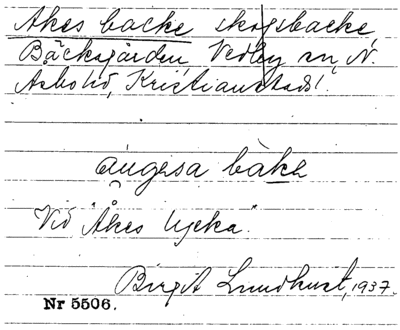 Åkes backe skogsbacke
Bäcksgården Vedby sn, N.
Asbo hd, Kristianstads l.
bàkə
Vid "Åkes lycka".
Birgit Lundkvist, 1937.
Nr 5506.